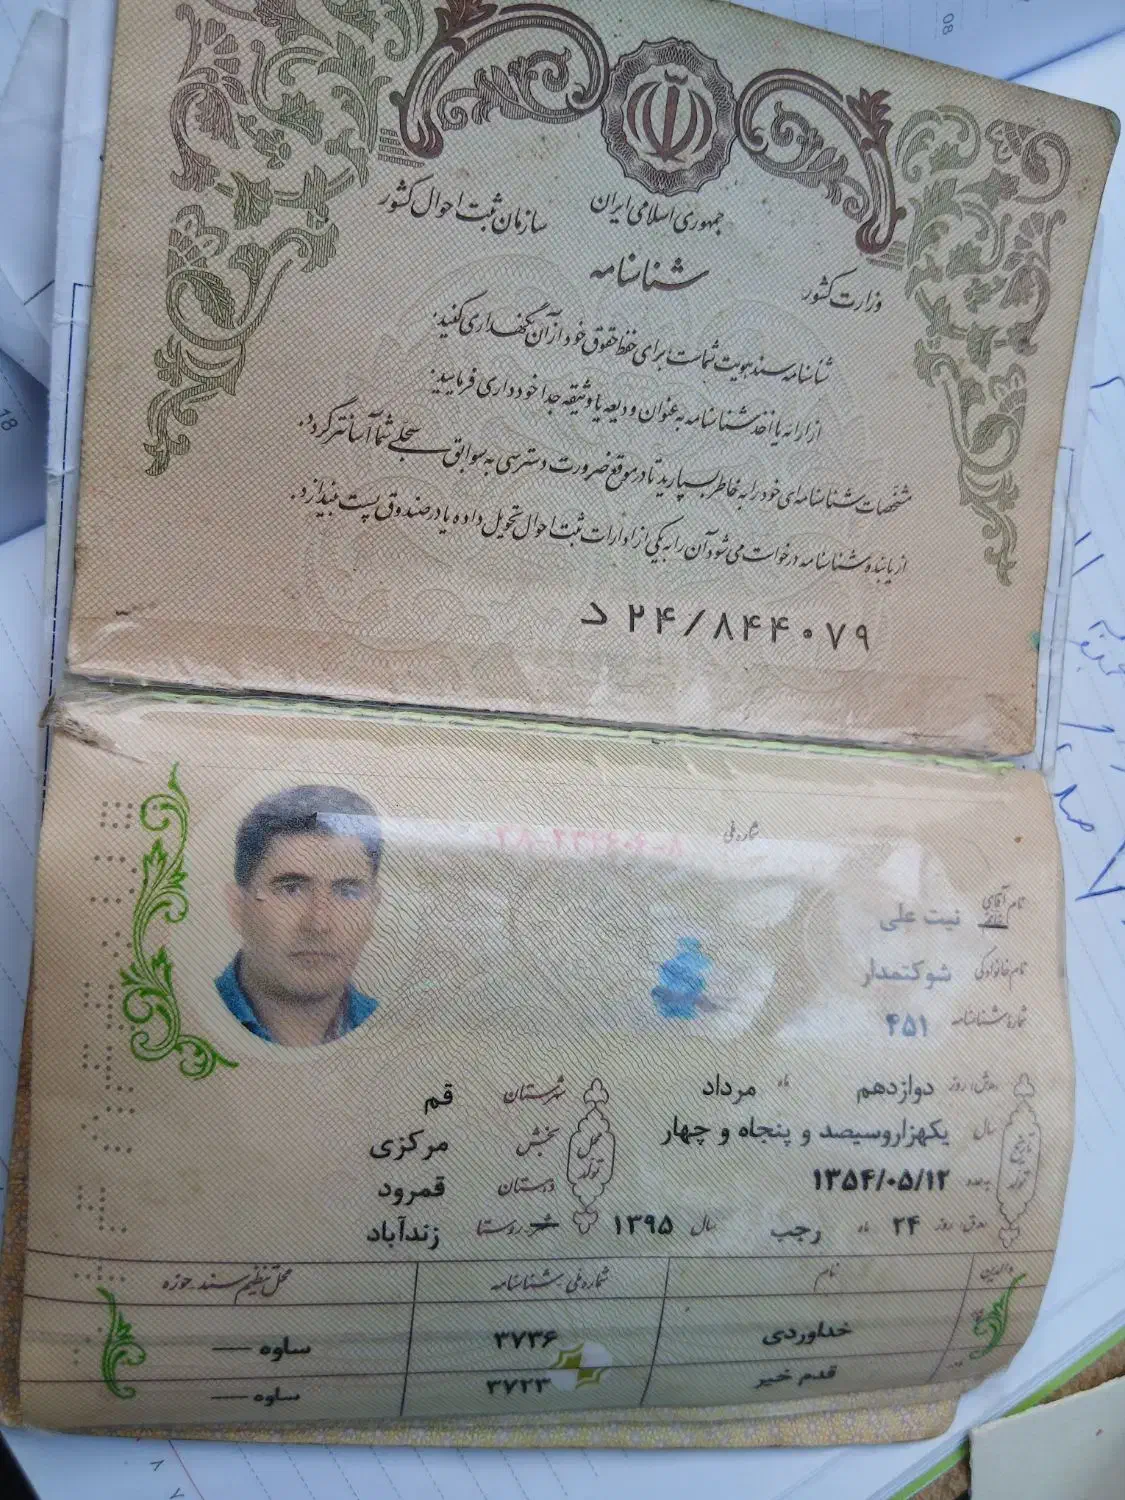 جمهوری اسلامی ایران
وزارت کشور
سازمان ثبت احوال کشور
شناسنامه
شناسنامه سند هویت شماست برای حفظ حقوق خود از آن نگهداری کنید.
از ارائه یا اخذ شناسنامه به عنوان ودیعه یا وثیقه جدا خودداری فرمایید.
مشخصات شناسنامه‌ای خود را به خاطر بسپارید تا در موقع ضرورت دسترسی به سوابق سجلی شما آسانتر گردد.
از یابنده شناسنامه درخواست می‌شود آن را به یکی از ادارات ثبت احوال تحویل داده یا در صندوق پست بیندازد.
د ۲۴/۸۴۴۰۷۹
شماره ملی
نام آقای خانم نیت علی
نام خانوادگی شوکتمدار
شماره شناسنامه ۴۵۱
تاریخ تولد
روز دوازدهم ماه مرداد
سال یکهزاروسیصد و پنجاه و چهار
به عدد ۱۳۵۴/۰۵/۱۲
روز ۲۴ ماه رجب سال ۱۳۹۵
محل تولد
شهرستان قم
بخش مرکزی
دهستان قمرود
شهر روستا زندآباد
والدین نام شماره ملی شناسنامه محل تنظیم سند حوزه
خداوردی ۳۷۳۶ ساوه —
قدم خیر ۳۷۲۳ ساوه —